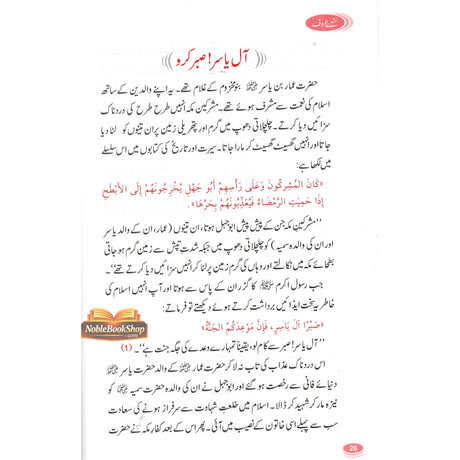 سنہرے حروف
آل یاسر! صبر کرو
حضرت عمار بن یاسر رضی اللہ عنہ بنو مخزوم کے غلام تھے۔ یہ اپنے والدین کے ساتھ
اسلام کی نعمت سے مشرف ہوئے تھے۔ مشرکین مکہ انہیں طرح طرح کی دردناک
سزائیں دیا کرتے۔ چلچلاتی دھوپ میں گرم اور پتھریلی زمین پر ان تینوں کو لٹا دیا
جاتا اور انہیں گھسیٹ گھسیٹ کر مارا جاتا۔ سیرت اور تاریخ کی کتابوں میں اس سلسلے
میں لکھا ہے:
«كَانَ الْمُشْرِكُونَ وَعَلَى رَأْسِهِمْ أَبُو جَهْلٍ يُخْرِجُونَهُمْ إِلَى الأَبْطَحِ
إِذَا حَمِيَتِ الرَّمْضَاءُ فَيُعَذِّبُونَهُمْ بِحَرِّهَا».
’’مشرکین مکہ جن کے پیش پیش ابوجہل ہوتا، ان تینوں (عمار، ان کے والد یاسر
اور ان کی والدہ سمیہ) کو چلچلاتی دھوپ میں جبکہ شدت تپش سے زمین گرم ہو جاتی
بطحائے مکہ میں نکالتے اور وہاں کی گرم زمین پر لٹا کر انہیں سزائیں دیا کرتے تھے‘‘۔
جب رسول اکرم ﷺ کا گزر ان کے پاس سے ہوتا اور آپ انہیں اسلام کی
خاطر یہ سخت ایذائیں برداشت کرتے ہوئے دیکھتے تو فرماتے:
«صَبْرًا آلَ يَاسِرٍ، فَإِنَّ مَوْعِدَكُمُ الْجَنَّةُ»
’’آل یاسر! صبر سے کام لو، یقیناً تمہارے وعدے کی جگہ جنت ہے‘‘۔ (1)
اس دردناک عذاب کی تاب نہ لا کر حضرت عمار کے والد حضرت یاسر رضی اللہ عنہ
دنیائے فانی سے رخصت ہو گئے اور ابوجہل نے ان کی والدہ حضرت سمیہ رضی اللہ عنہا کو
نیزہ مار کر شہید کر ڈالا۔ اسلام میں خلعتِ شہادت سے سرفراز ہونے کی سعادت
سب سے پہلے اسی خاتون کے نصیب میں آئی۔ پھر اس کے بعد کفار مکہ نے حضرت
26
NobleBookShop
.com